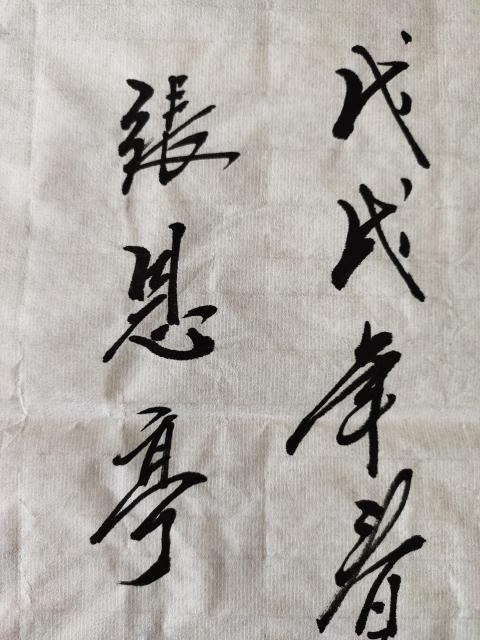 戊戌年春
張恩亭